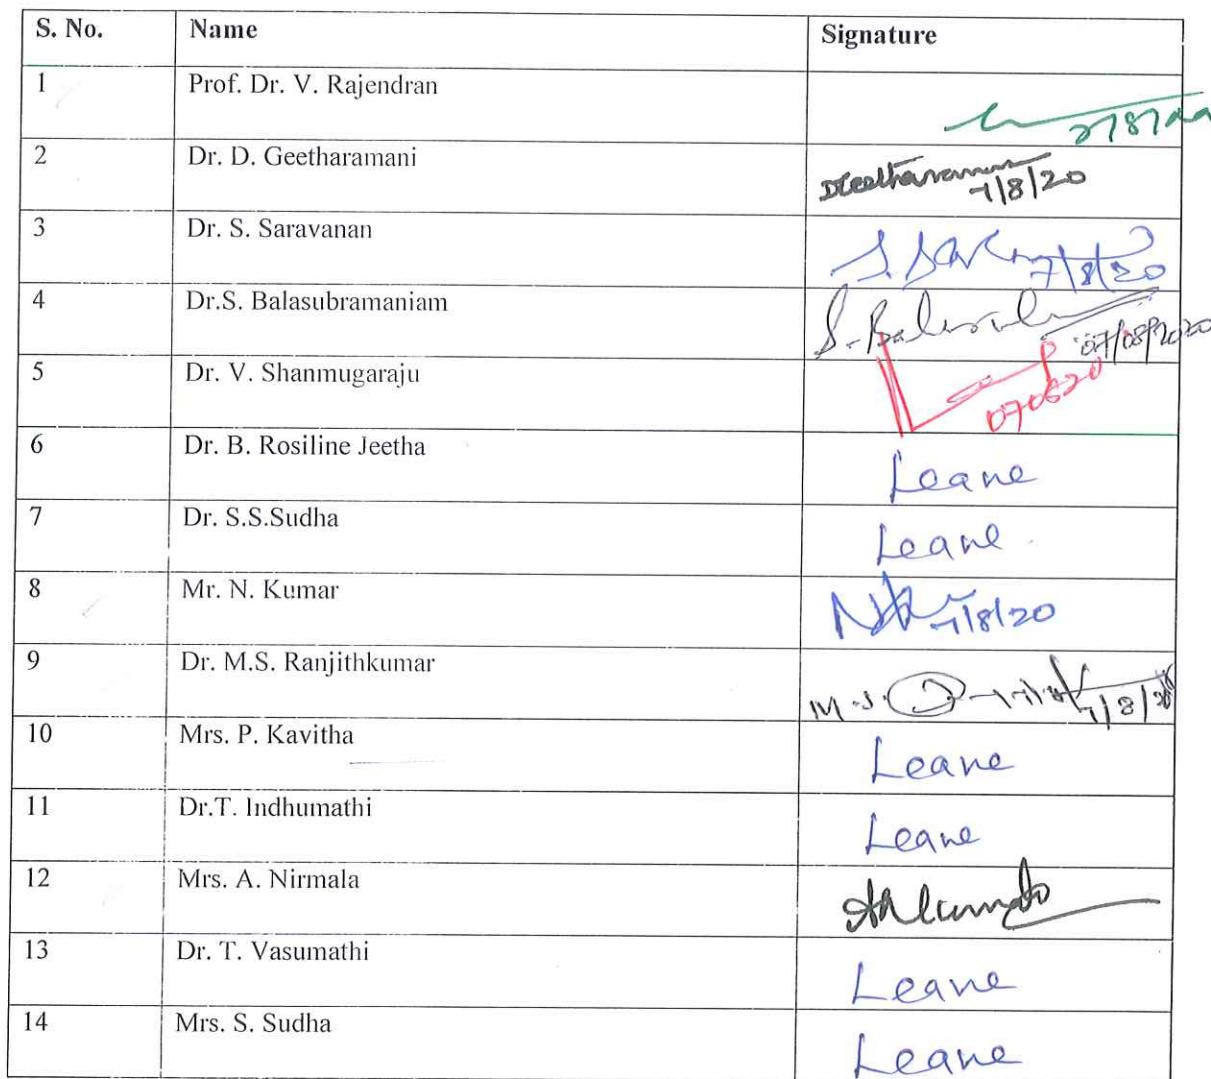 S. No. Name Signature
1 Prof. Dr. V. Rajendran
2 Dr. D. Geetharamani 7/8/20
3 Dr. S. Saravanan 7/8/20
4 Dr.S. Balasubramaniam 07/08/2020
5 Dr. V. Shanmugaraju
6 Dr. B. Rosiline Jeetha Leave
7 Dr. S.S.Sudha Leave
8 Mr. N. Kumar 7/8/20
9 Dr. M.S. Ranjithkumar 7/8/20
10 Mrs. P. Kavitha Leave
11 Dr.T. Indhumathi Leave
12 Mrs. A. Nirmala
13 Dr. T. Vasumathi Leave
14 Mrs. S. Sudha Leave